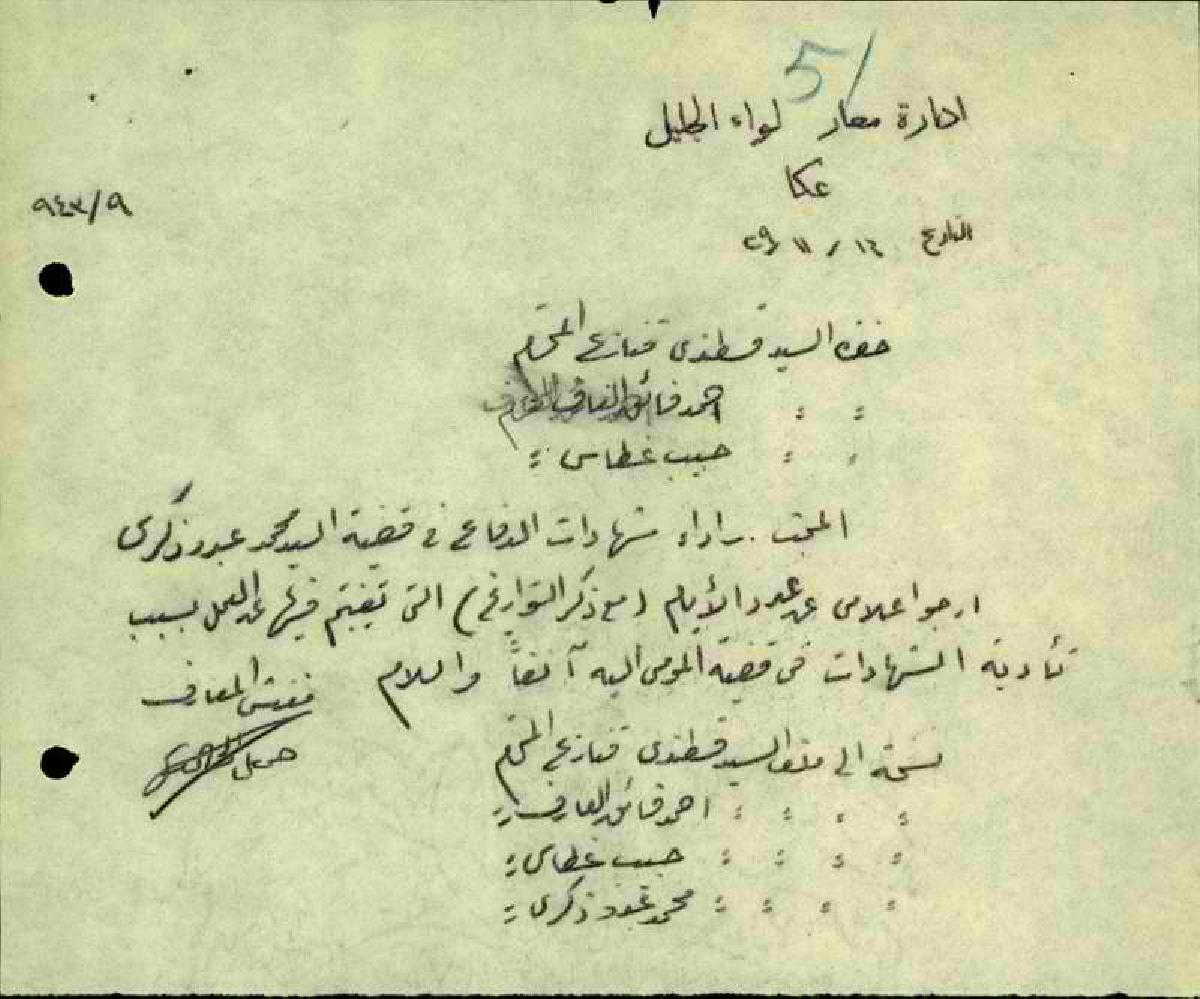 5/
ادارة معارف لواء الجليل
عكا
٩٤٣/٩
التاريخ ١٤ / ١١ / ٢٩
حضرة السيد قسطندي قنازع المحترم
: : احمد فائق العارف المحترم
: : حبيب غطاس :
المختص باداء شهادات الدفاع في قضية السيد محمد عبده زكري
ارجو اعلامي عن عدد الأيام (مع ذكر التواريخ) التي تغيبتم فيها عن العمل بسبب
تأدية الشهادات في قضية المومى اليه آنفاً والسلام
مفتش المعارف
نسخة الى ملف السيد قسطندي قنازع المحترم
: : : : احمد فائق العارف :
: : : : حبيب غطاس :
: : : : محمد عبده زكري :